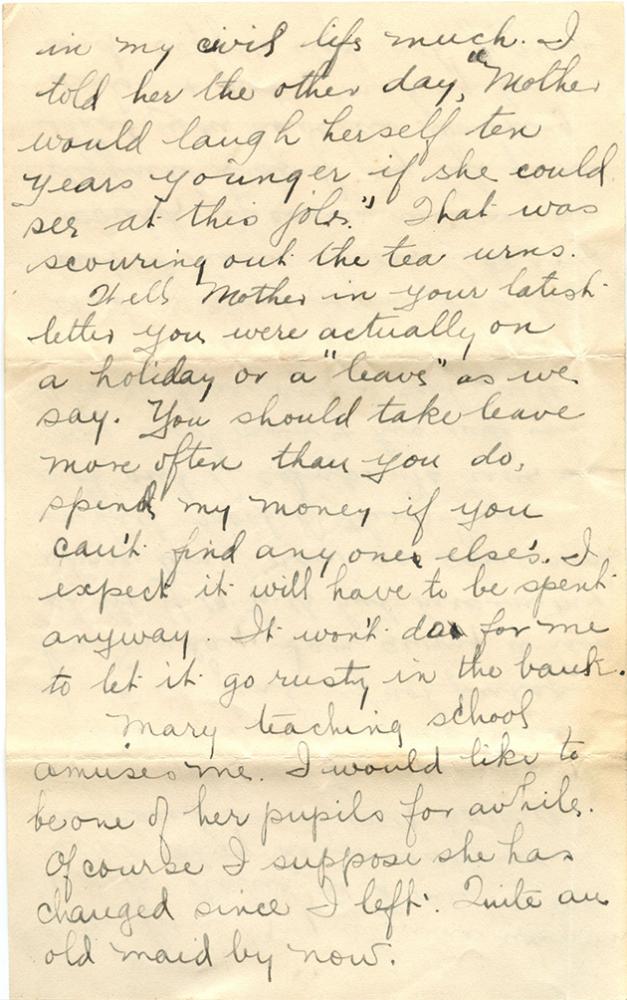 in my civil life much. I
told her the other day, "Mother
would laugh herself ten
years younger if she could
see at this job." That was
scouring out the tea urns.
Well Mother in your latest
letter you were actually on
a holiday or a "leave" as we
say. You should take leave
more often than you do,
spend my money if you
can't find any ones else's. I
expect it will have to be spent
anyway. It won't do for me
to let it go rusty in the bank.
Mary teaching school
amuses me. I would like to
be one of her pupils for awhile.
Of course I suppose she has
changed since I left. Quite an
old maid by now.